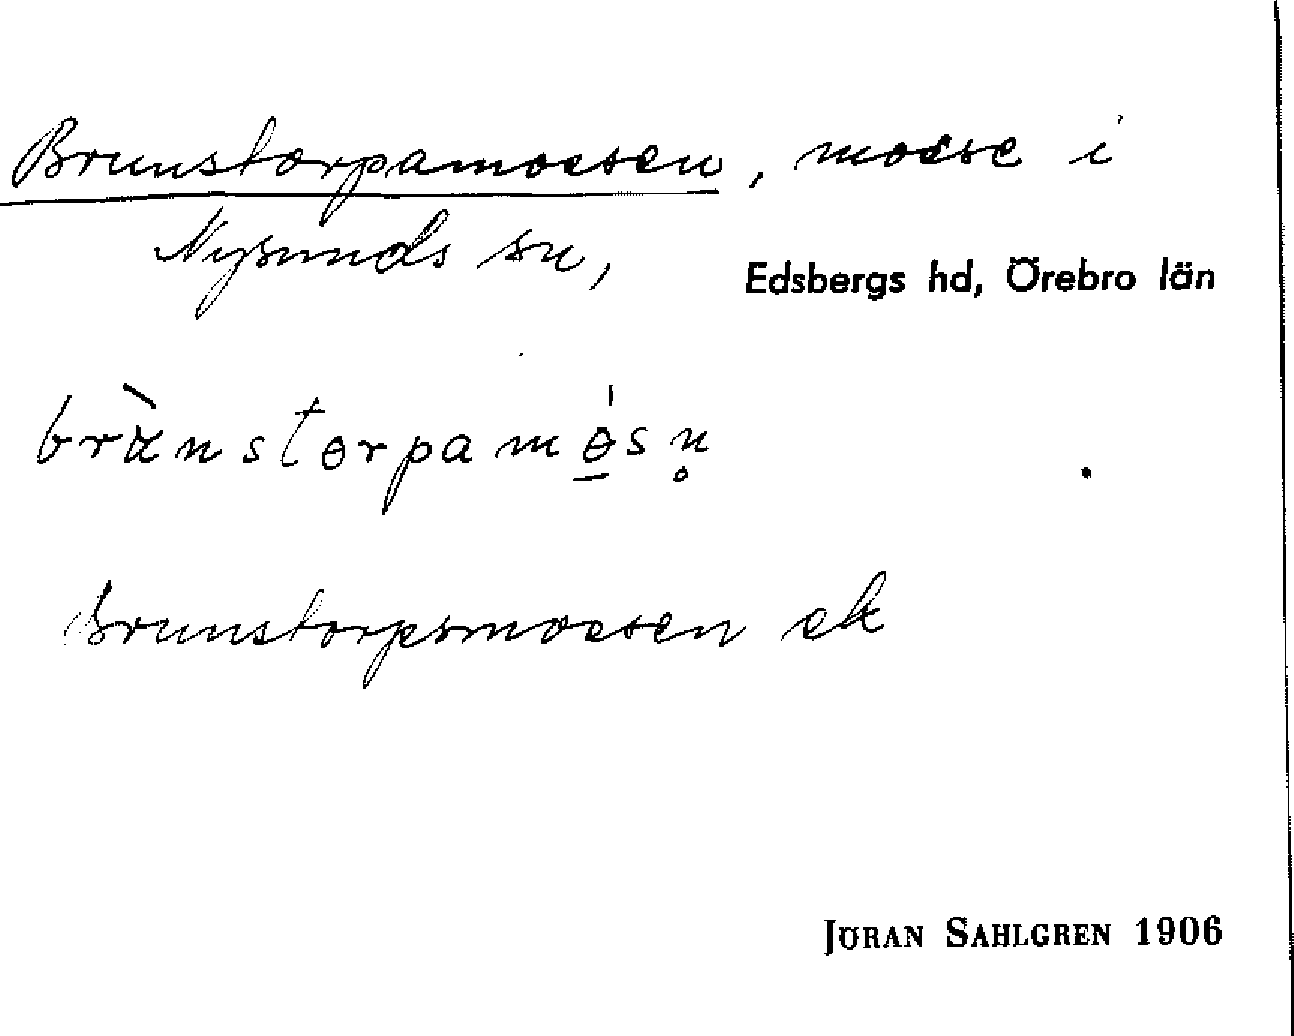 Brunstorpamossen, mosse i
Nysunds sn,
Edsbergs hd, Örebro län
Brunstorpsmossen ek
JÖRAN SAHLGREN 1906